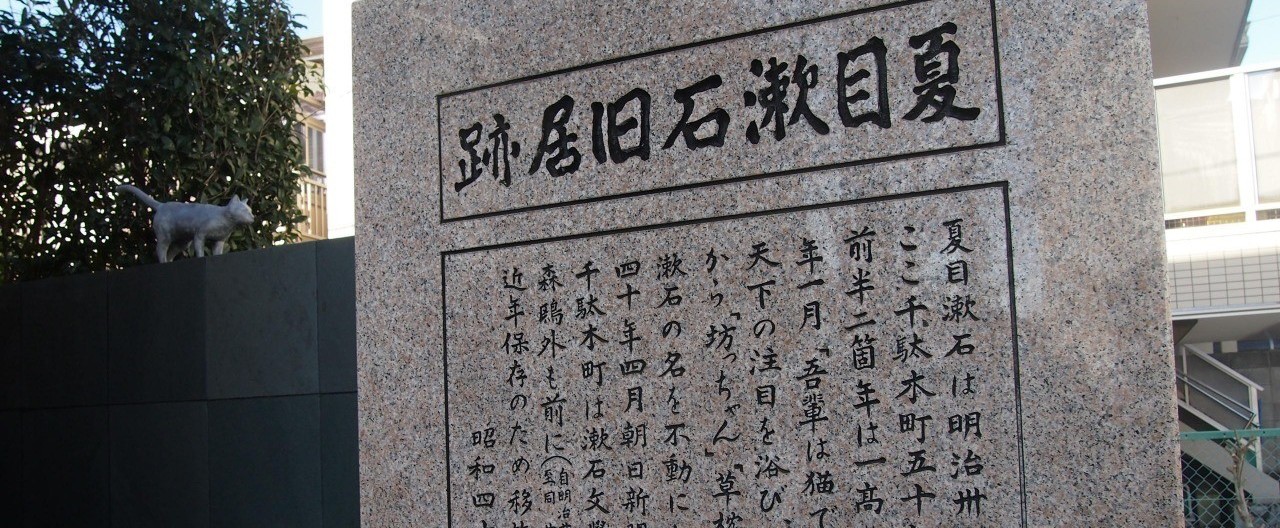 夏目漱石旧居跡
夏目漱石は明治卅
ここ千駄木町五十
前半二箇年は一高
年一月「吾輩は猫で
天下の注目を浴び、
から「坊っちゃん」「草枕
漱石の名を不動に
四十年四月朝日新聞
千駄木町は漱石文學
森鷗外も前に(自明治
至同
近年保存のため移
昭和四十